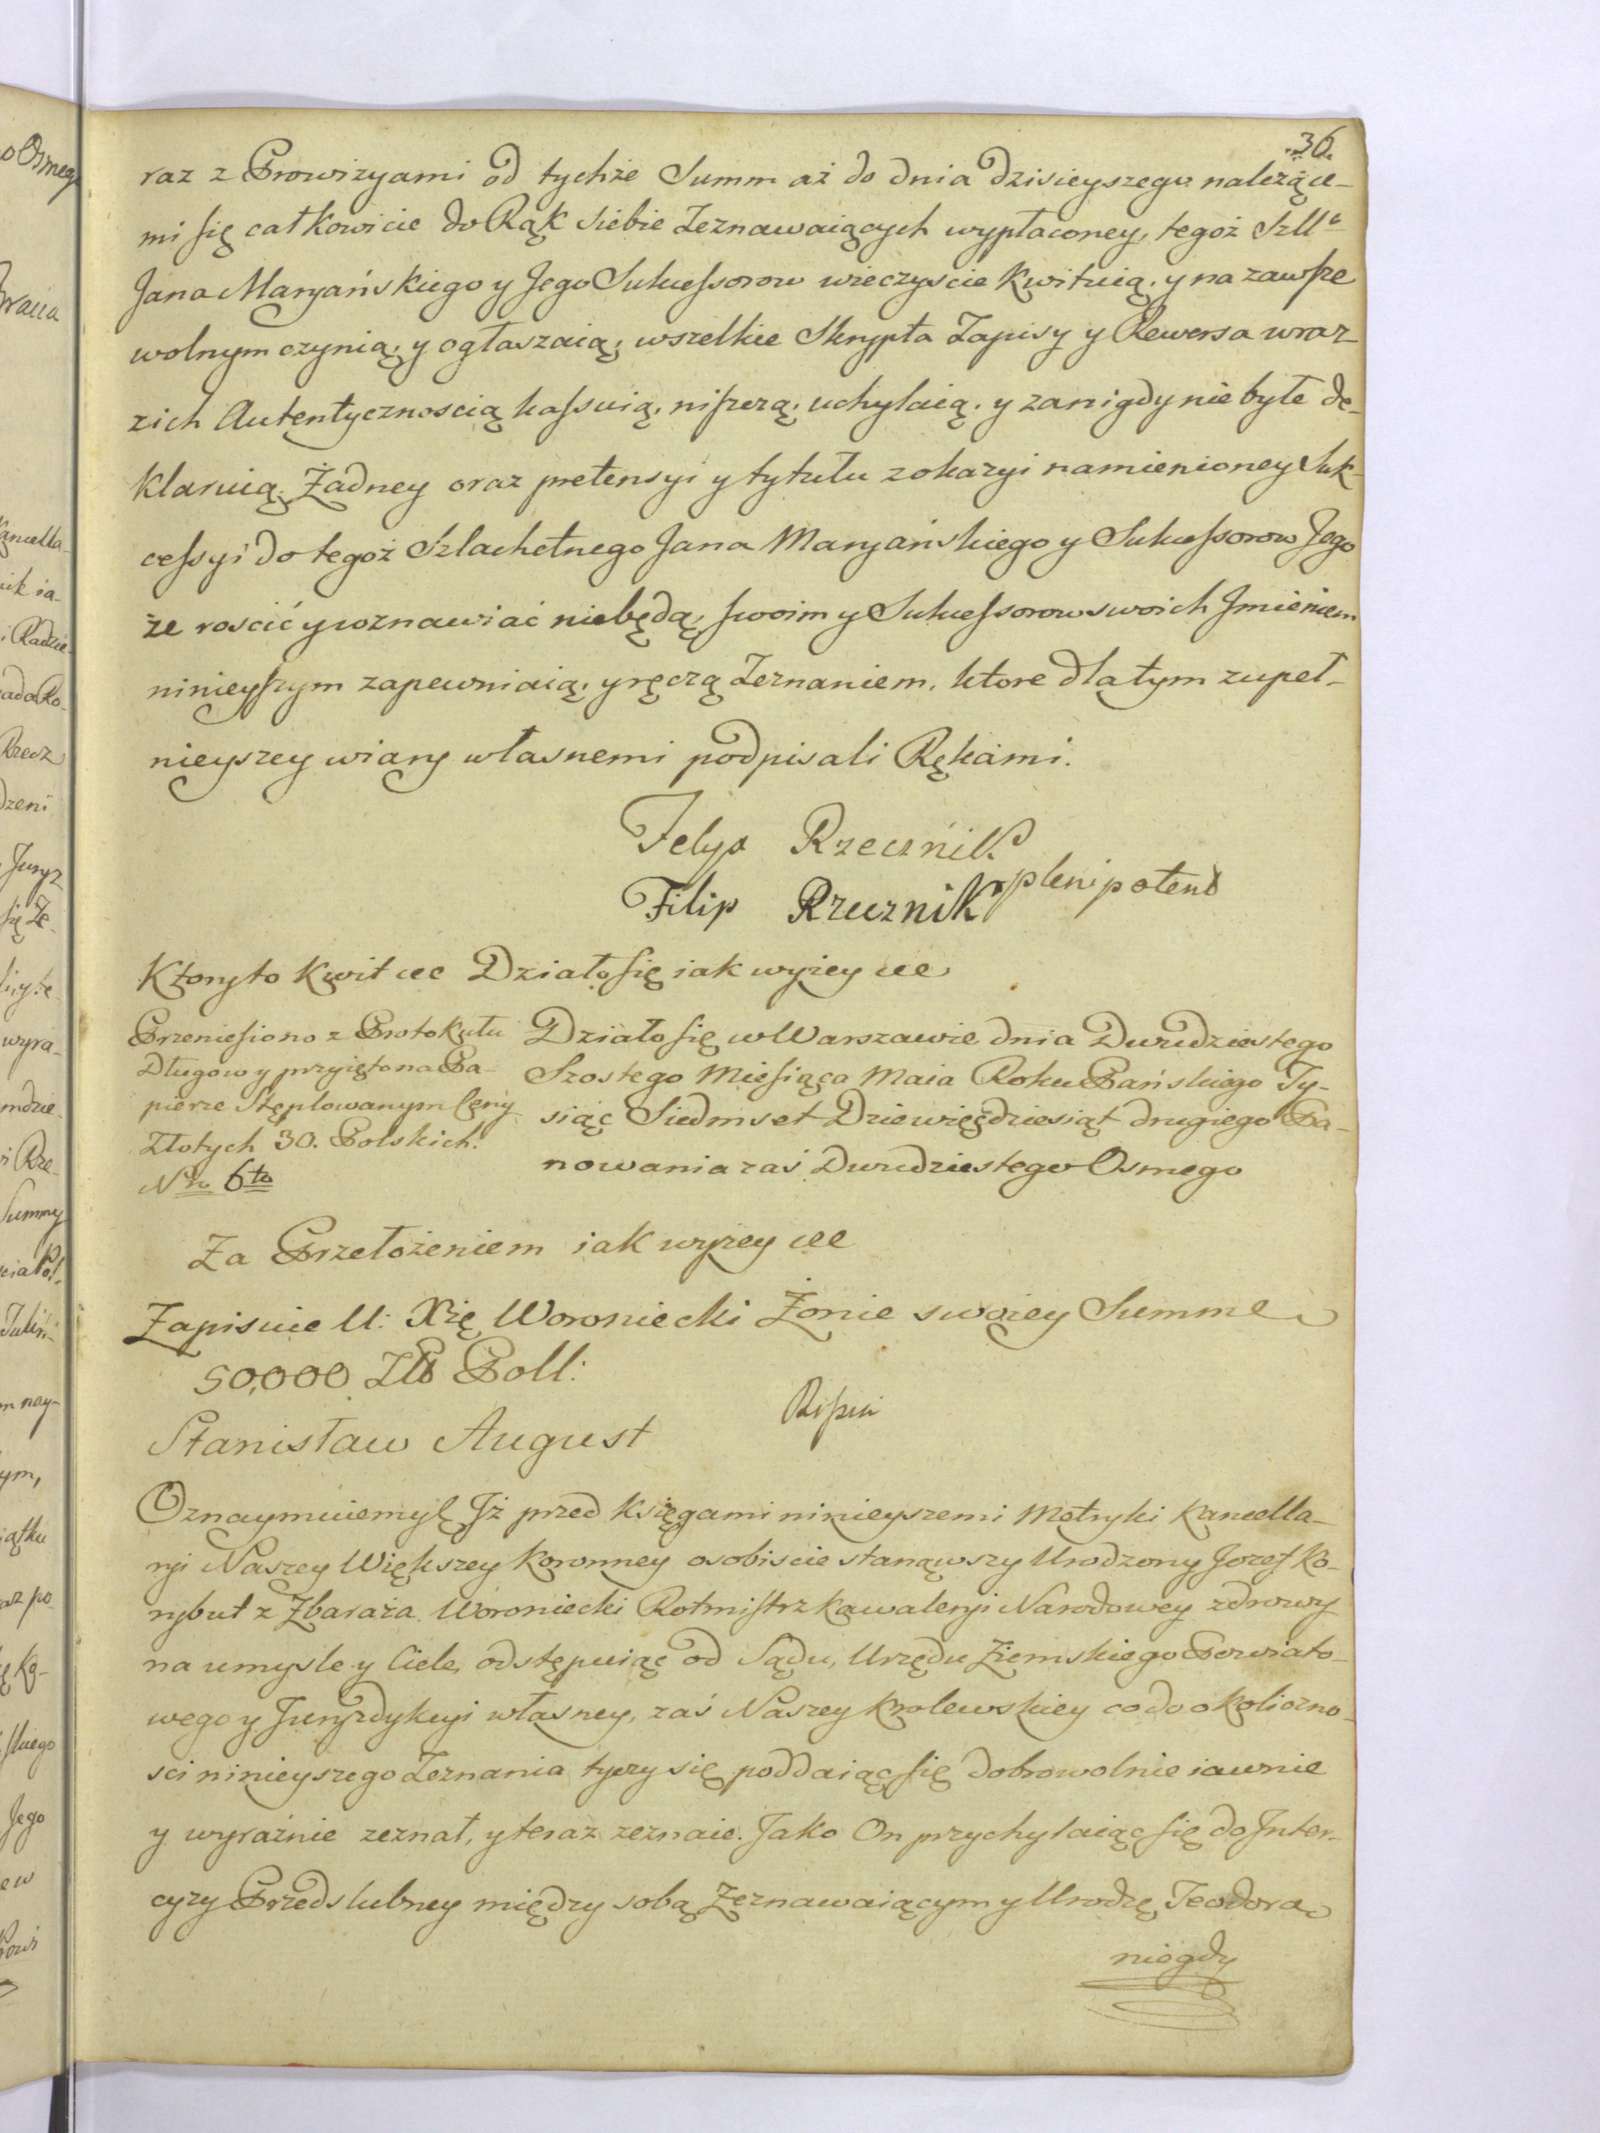 36.
raz z Prowizyami od tychże Summ aż do dnia dzisieyszego należące-
mi się całkowicie do Rąk siebie Zeznawaiących wypłaconey, tegoż Szll<sup>o</sup>
Jana Maryańskiego y Jego Sukcessorow wieczyscie kwituią, y na zawsze
wolnym czynią, y ogłaszaią, wszelkie Skrypta Zapisy y Rewersa wraz
z ich Autentycznoscią kassuią, niszczą, uchylaią, y za nigdy nie byłe de-
klaruią. Żadney oraz pretensyi y tytułu z okazyi namienioney Suk-
cessyi do tegoż Szlachetnego Jana Maryańskiego y Sukcessorow Jego
że roscić y wznawiać nie będą, swoim y Sukcessorow swoich Jmieniem
ninieyszym zapewniaią, y ręczą Zeznaniem, ktore dla tym zupeł-
nieyszey wiary własnemi podpisali Rękami.
Felyx Rzecznik
plenipotent
Filip Rzecznik
Ktoryto Kwit etc Działo się iak wyżey etc
Przeniesiono z Protokułu
Długow y przyięto na Pa-
pierze Stęplowanym Ceny
Złotych 30. Polskich.
Nro 6to
Działo się w Warszawie dnia Dwudziestego
Szostego Miesiąca Maia Roku Pańskiego Ty-
siąc Siedmset Dziewięćdziesiąt drugiego Pa-
nowania zaś Dwudziestego Osmego
Za Przełożeniem iak wyżey etc
Zapisuie U: Xię Woroniecki Żonie swoiey Summę
50,000 Zł Poll:
Stanisław August
Oznaymuiemy &c Jż przed Księgami ninieyszemi Metryki Kancella-
ryi Naszey Większey Koronney osobiscie stanąwszy Urodzony Jozef Ko-
rybut z Zbaraża Woroniecki Rotmistrz Kawaleryi Narodowey zdrowy
na umysle y Ciele, odstępuiąc od Sądu, Urzędu Ziemskiego Powiato-
wego y Juryzdykcyi własney, zaś Naszey Krolewskiey co do okoliczno-
sci ninieyszego Zeznania tyczy się poddaiąc się dobrowolnie iawnie
y wyraźnie zeznał, y teraz zeznaie. Jako On przychylaiąc się do Jnter-
cyzy Przedslubney między sobą Zeznawaiącym y Urodzą Teodorą
niegdy